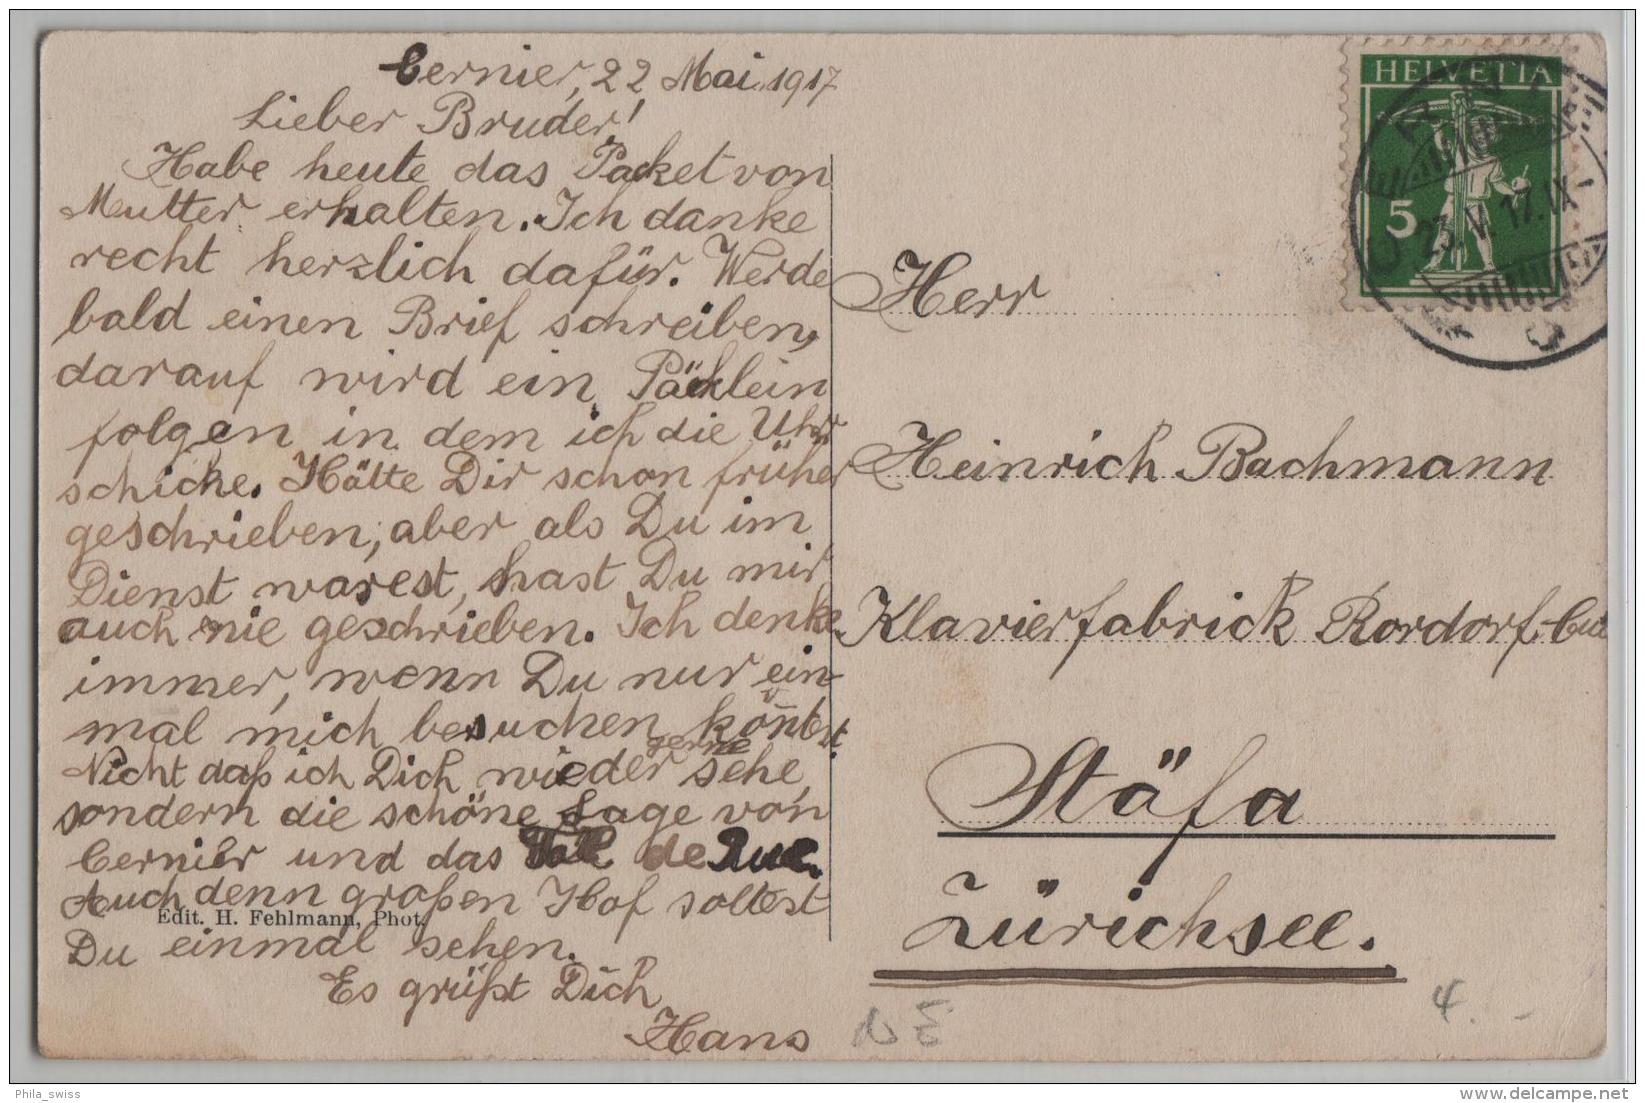 Cernier, 22 Mai. 1917
Lieber Bruder!
Habe heute das Packet von
Mutter erhalten. Ich danke
recht herzlich dafür. Werde
bald einen Brief schreiben,
darauf wird ein Päcklein
folgen in dem ich die Uhr
schicke. Hätte Dir schon früher
geschrieben, aber als Du im
Dienst warest, hast Du mir
auch nie geschrieben. Ich denke
immer, wenn Du nur ein-
mal mich besuchen könntest.
Nicht daß ich Dich wieder gerne sehe,
sondern die schöne Lage von
Cernier und das de Ruz.
Auch denn großen Hof solltest
Du einmal sehen.
Es grüßt Dich
Hans
Edit. H. Fehlmann, Phot.
HELVETIA
5
23.V.17.IX-
Herr
Heinrich Bachmann
Klavierfabrick Rordorf-Cie
Stäfa
Zürichsee.
NE
4.-
Phila_swiss
delcampe.net